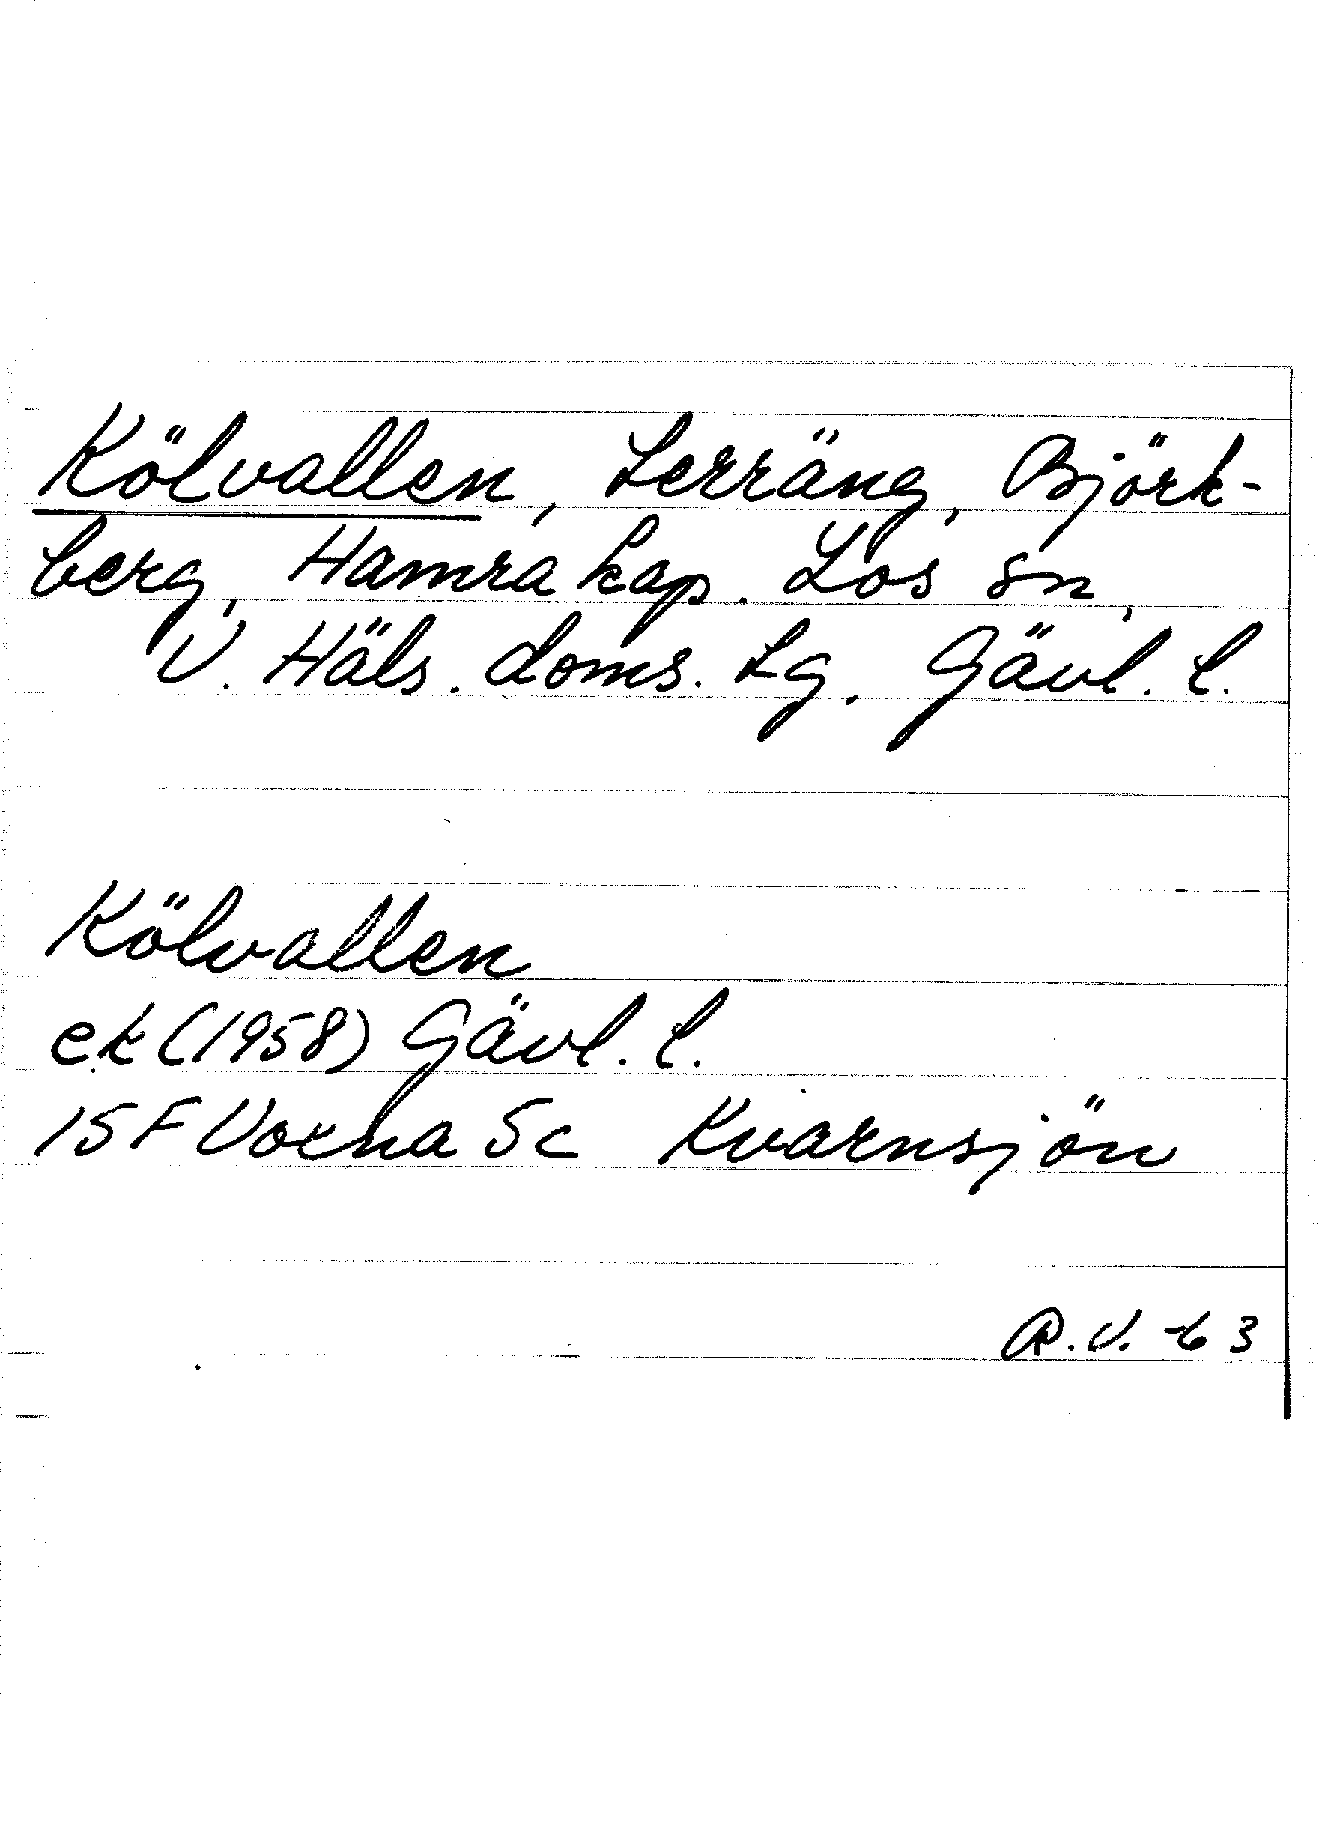 Kölvallen, Lerräng, Björk-
berg, Hamra kap. Los sn,
V. Häls. doms. Lg. Gävl. l.
Kölvallen
ek (1958) Gävl. l.
15 F Voxna 5c Kvarnsjön
R.V. -63